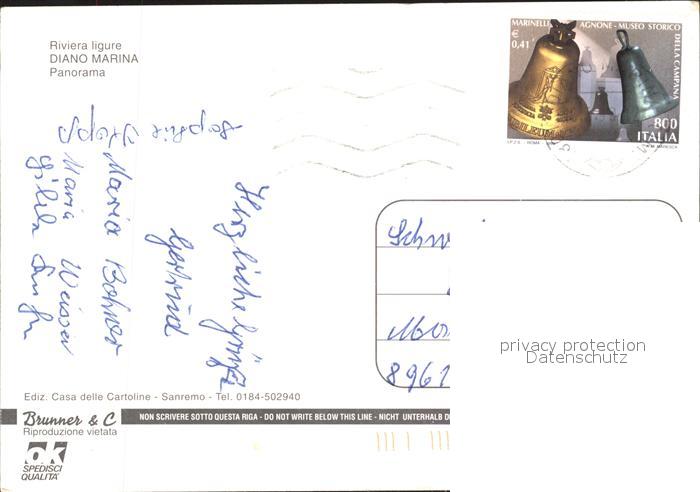 Riviera ligure
DIANO MARINA
Panorama
MARINELLI AGNONE - MUSEO STORICO DELLA CAMPANA
€
0,41
800
ITALIA
I.P.Z.S. - ROMA
Sophie
Maria Bohner
Maria Weissen
Herzliche Grüße
Gertrud
Schw
896
privacy protection
Datenschutz
Ediz. Casa delle Cartoline - Sanremo - Tel. 0184-502940
Brunner & C
Riproduzione vietata
NON SCRIVERE SOTTO QUESTA RIGA - DO NOT WRITE BELOW THIS LINE - NICHT UNTERHALB
ok
SPEDISCI
QUALITA'